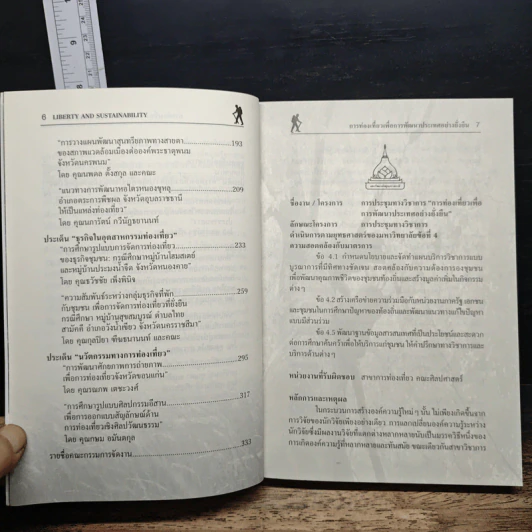 6 LIBERTY AND SUSTAINABILITY
"การวางแผนพัฒนาสุนทรียภาพทางสายตา 193
ของสภาพแวดล้อมเมืองต่อองค์พระธาตุพนม
จังหวัดนครพนม"
โดย คุณนพดล ตั้งสกุล และคณะ
"แนวทางการพัฒนาหอไตรหนองขุหลุ 209
อำเภอตระการพืชผล จังหวัดอุบลราชธานี
ให้เป็นแหล่งท่องเที่ยว"
โดย คุณนภารัตน์ ทวีนัฐยานนท์
ประเด็น "ธุรกิจในอุตสาหกรรมท่องเที่ยว"
"การศึกษารูปแบบการจัดการท่องเที่ยว 233
ของธุรกิจชุมชน: กรณีศึกษาหมู่บ้านโฮมสเตย์
และหมู่บ้านประมงน้ำจืด จังหวัดหนองคาย"
โดย คุณธวัชชัย เพ็งพินิจ
"ความสัมพันธ์ระหว่างกลุ่มธุรกิจที่พัก
กับชุมชน เพื่อการจัดการท่องเที่ยวที่ยั่งยืน
กรณีศึกษา หมู่บ้านสุขสมบูรณ์ ตำบลไทย
สามัคคี อำเภอวังน้ำเขียว จังหวัดนครราชสีมา"
โดย คุณกุลปียา และคณะ
ประเด็น "นวัตกรรมทางการท่องเที่ยว"
"การพัฒนาศักยภาพการถ่ายภาพ 295
เพื่อการท่องเที่ยวจังหวัดขอนแก่น"
โดย คุณรณภพ เตชะวงศ์
"การศึกษารูปแบบศิลปกรรมอีสาน 317
เพื่อการออกแบบสัญลักษณ์ด้าน
การท่องเที่ยวเชิงศิลปวัฒนธรรม"
โดย คุณกษม อมันตกุล
รายชื่อคณะกรรมการจัดงาน 337
การท่องเที่ยวเพื่อการพัฒนาประเทศอย่างยั่งยืน 7
ชื่องาน / โครงการ การประชุมทางวิชาการ "การท่องเที่ยวเพื่อ
การพัฒนาประเทศอย่างยั่งยืน"
ลักษณะโครงการ การประชุมทางวิชาการ
ดำเนินการตามยุทธศาสตร์ของมหาวิทยาลัยข้อที่ 4
ความสอดคล้องกับมาตรการ
ข้อ 4.1 กำหนดนโยบายและจัดทำแผนบริการวิชาการแบบ
บูรณาการที่มีทิศทางชัดเจน สอดคล้องกับความต้องการของชุมชน
เพื่อพัฒนาคุณภาพชีวิตของชุมชนท้องถิ่นและสร้างมูลค่าเพิ่มในกิจกรรม
ต่างๆ
ข้อ 4.2 สร้างเครือข่ายความร่วมมือกับหน่วยงานภาครัฐ เอกชน
และชุมชนในการศึกษาปัญหาของท้องถิ่นและแนวทางการแก้ไขปัญหา
แบบมีส่วนร่วม
ข้อ 4.5 พัฒนาฐานข้อมูลสารสนเทศที่เป็นประโยชน์และสะดวก
ต่อการศึกษาค้นคว้าเพื่อให้บริการแก่ชุมชน ให้คำปรึกษาทางวิชาการและ
บริการด้านต่างๆ
หน่วยงานที่รับผิดชอบ สาขาการท่องเที่ยว คณะศิลปศาสตร์
หลักการและเหตุผล
ในกระบวนการสร้างองค์ความรู้ใหม่ๆ นั้น ไม่เพียงเกิดขึ้นจาก
การวิจัยของนักวิจัยเพียงอย่างเดียว การแลกเปลี่ยนองค์ความรู้ระหว่าง
นักวิจัยซึ่งมีผลงานวิจัยที่แตกต่างหลากหลายนับเป็นมรรควิธีหนึ่งของ
การเกิดองค์ความรู้ที่หลากหลายและทันสมัย ขณะเดียวกันสาขาวิชาการ